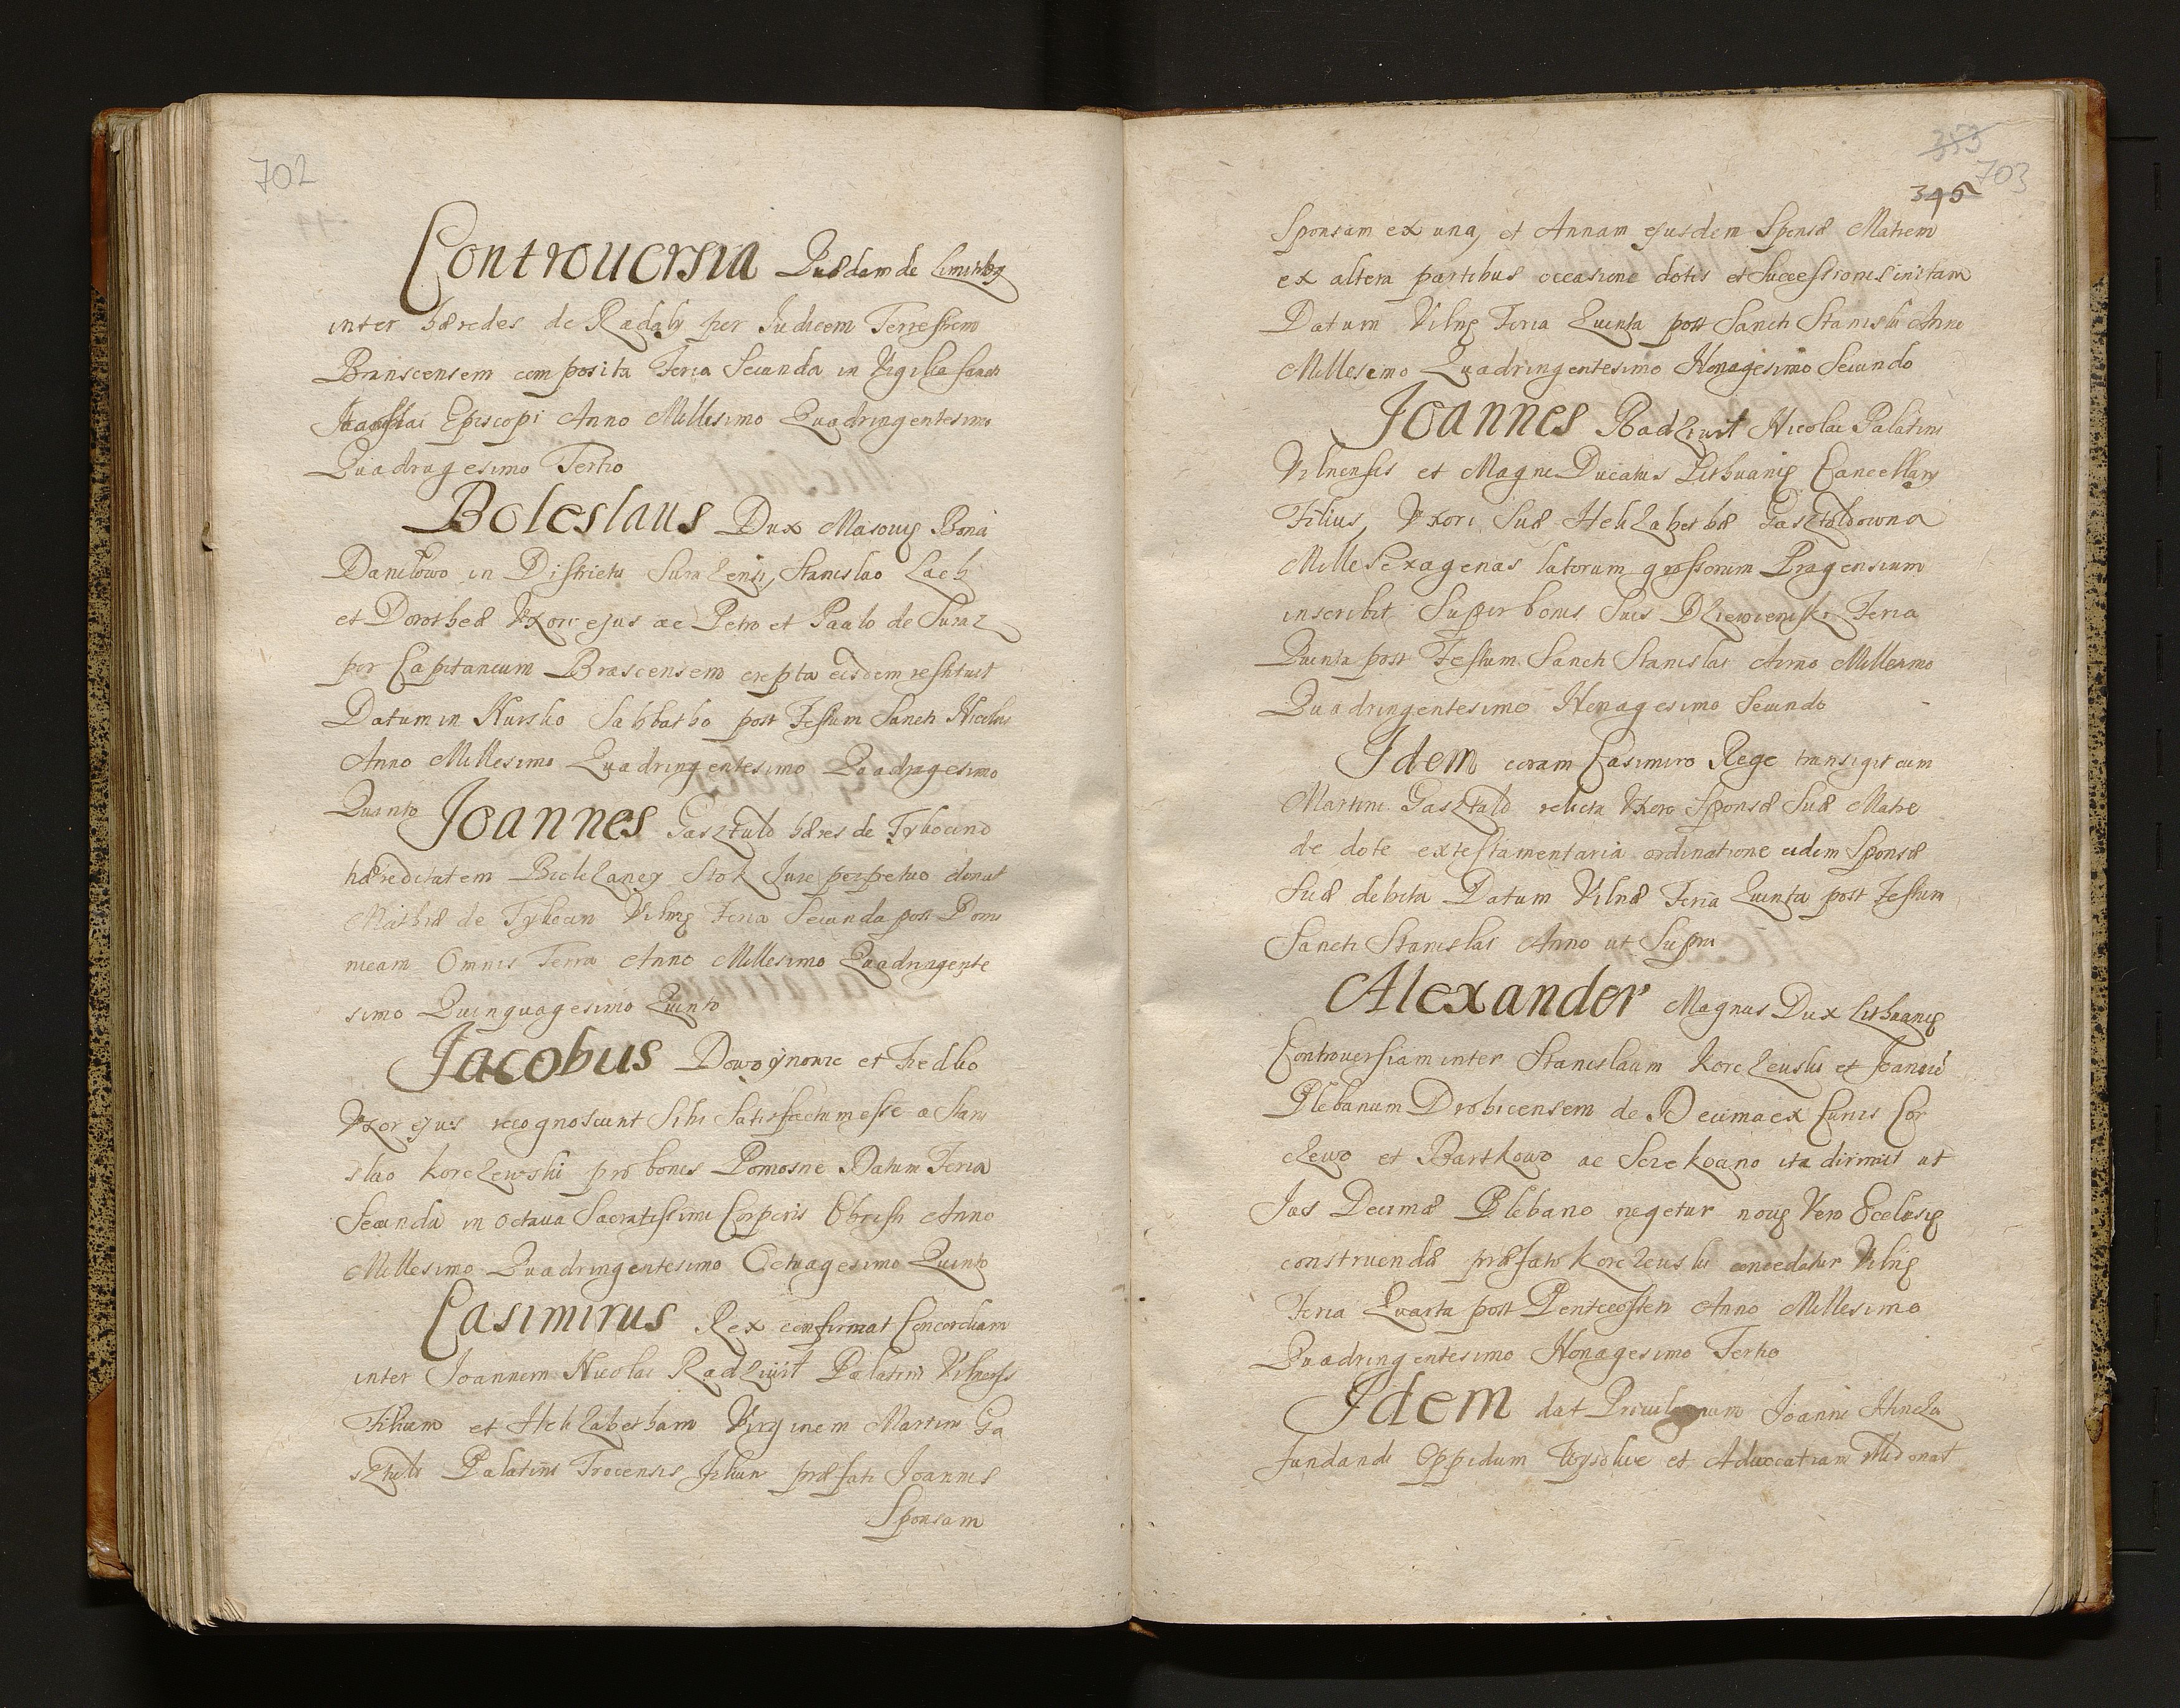 702
Controuersia Quædam de Limitibus
inter hæredes de Radaly per Iudicem Terrestrem
Branscensem composita Feria Secunda in Vigilia Sancti
Episcopi Anno Millesimo Quadringentesimo
Quadragesimo Tertio
Boleslaus Dux Masouię Bona
Daniłowo in Districtu Surazensi, Stanislao Lach
et Dorotheæ Vxori ejus ac Petro et Paulo de Suraz
per Capitaneum Brascensem erepta eisdem restituit
Datum in Kursko Sabbatho post Festum Sancti Nicolai
Anno Millesimo Quadringentesimo Quadragesimo
Quinto
Joannes Gasztuld hæres de Tykocino
hæreditatem Stok Iure perpetuo donat
Mathiæ de Tykocin Vilnę Feria Secunda post Domi
nicam Omnis Terra Anno Millesimo Quadringente
simo Quinquagesimo Quinto
Jacobus Dowoynowic et Fedko
Vxor ejus recognoscunt Sibi Satisfactum esse a Stani
slao Korczewski pro bonis Pomosne Datum Feria
Secunda in Octaua Sacratissimi Corporis Christi Anno
Millesimo Quadringentesimo Octuagesimo Quinto
Casimirus Rex confirmat Concordiam
inter Joannem Nicolai Radziwił Palatini Vilnensis
Filium et Helizabetham Virginem Martini Ga
sztuld Palatini Trocensis Filiam præfati Joannis
Sponsam
353
703
346
Sponsam ex una, et Annam ejusdem Sponsæ Matrem
ex altera partibus occasione dotis et Successionis initam
Datum Vilnę Feria Quinta post Sancti Stanislai Anno
Millesimo Quadringentesimo Nonagesimo Secundo
Joannes Radziwił Nicolai Palatini
Vilnensis et Magni Ducatus Lithuanię Cancellarij
Filius, Vxori Suæ Helizabethæ Gasztoldowna
Mille Sexagenas latorum grossorum Pragensium
inscribit Super bonis Suis Dziewieniszki Feria
Quinta post Festum Sancti Stanislai Anno Millesimo
Quadringentesimo Nonagesimo Secundo
Idem coram Casimiro Rege transigit cum
Martini Gasztuld relicta Vxore Sponsæ Suæ Matre
de dote ex testamentaria ordinatione eidem Sponsæ
Suæ debita Datum Vilnæ Feria Quinta post Festum
Sancti Stanislai Anno ut Supra
Alexander Magnus Dux Lithuanię
Controuersiam inter Stanislaum Korczeuski et Joannem
Plebanum Drohicensem de Decima ex Curiis Cor
czewo et Bartkowo ac ita dirimit ut
Ius Decimæ Plebano negetur nouę Vero Ecclesię
construendæ præfato Korczeuski concedatur Vilnę
Feria Quarta post Pentecosten Anno Millesimo
Quadringentesimo Nonagesimo Tertio
Idem dat Priuilegium Joanni Hincza
fundandi Oppidum Wysokie et Aduocatiam illi donat